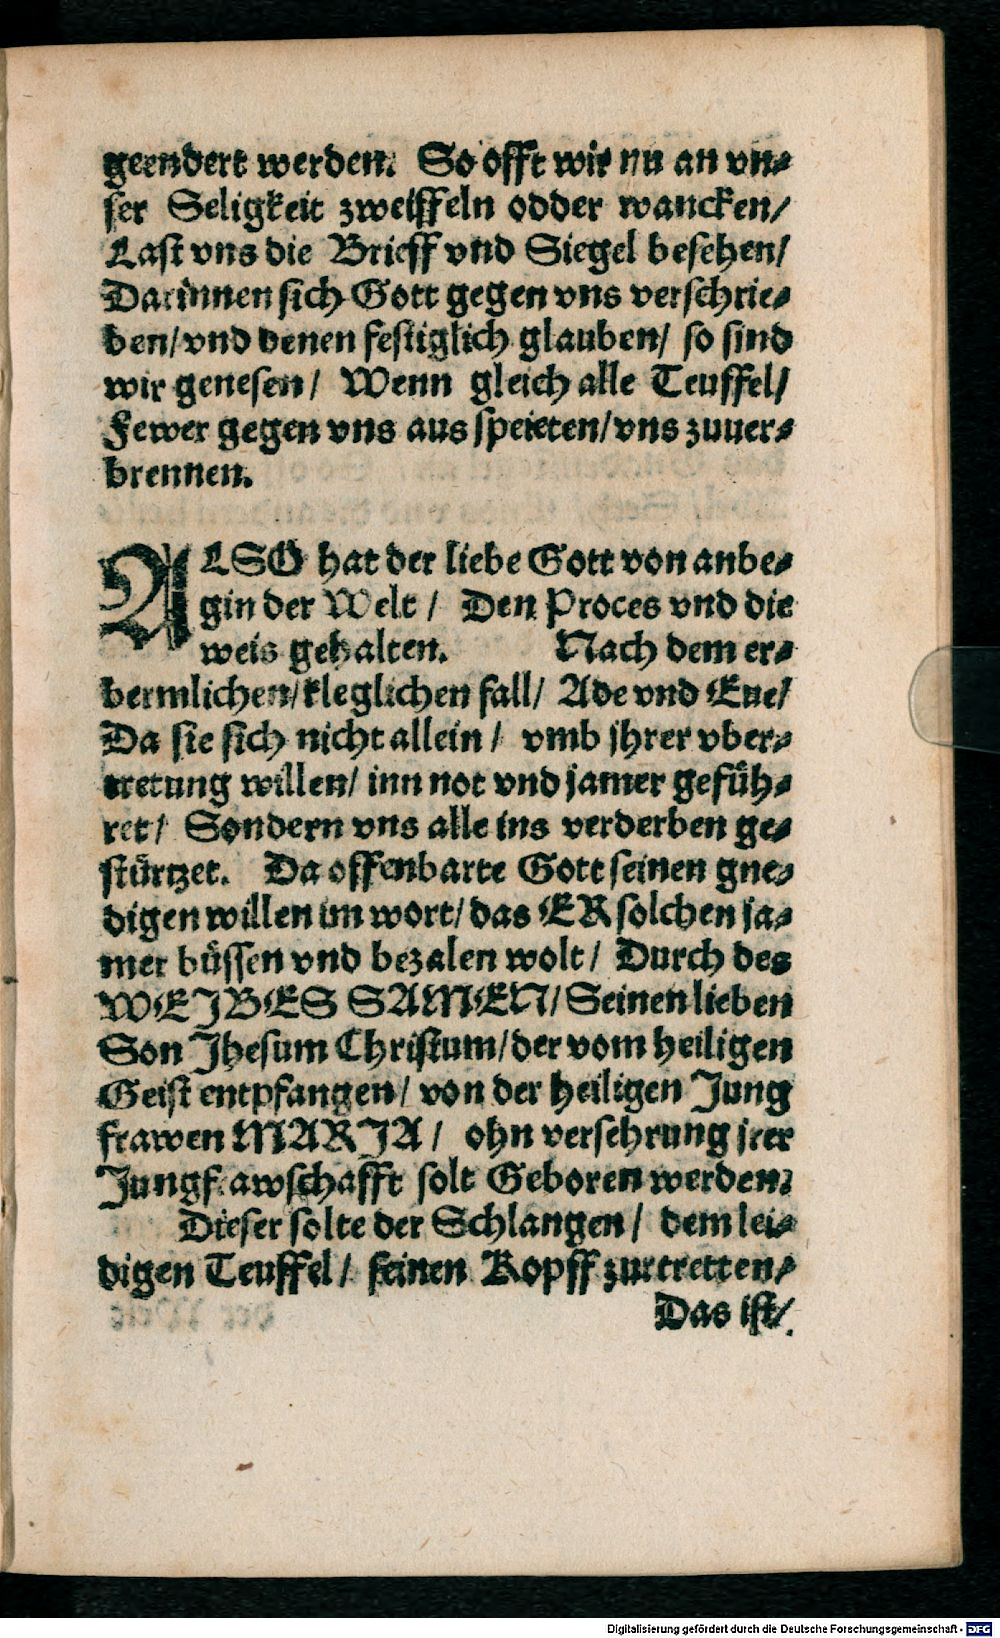 geendert werden. So offt wir nu an vn⸗
ser Seligkeit zweiffeln odder wancken/
Last vns die Brieff vnd Siegel besehen/
Darinnen sich Gott gegen vns verschrie⸗
ben/vnd denen festiglich glauben/ so sind
wir genesen/ Wenn gleich alle Teuffel/
Fewer gegen vns aus speieten/vns zuuer⸗
brennen.
ALSO hat der liebe Gott von anbe⸗
gin der Welt/ Den Proces vnd die
weis gehalten. Nach dem er⸗
bermlichen/kleglichen fall/ Ade vnd Eue/
Da sie sich nicht allein/ vmb jhrer vber⸗
tretung willen/ inn not vnd jamer gefüh⸗
ret/ Sondern vns alle ins verderben ge⸗
stürtzet. Da offenbarte Gott seinen gne⸗
digen willen im wort/das ER solchen ja⸗
mer büssen vnd bezalen wolt/ Durch des
WEIBES SAMEN/Seinen lieben
Son Jhesum Christum/der vom heiligen
Geist entpfangen/ von der heiligen Jung
frawen MARJA/ ohn versehrung jrer
Jungfrawschafft solt Geboren werden.
Dieser solte der Schlangen/ dem lei⸗
digen Teuffel/ seinen Kopff zurtretten⸗
Das ist/
Digitalisierung gefördert durch die Deutsche Forschungsgemeinschaft - DFG